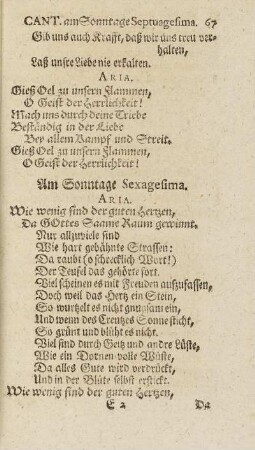 CANT. am Sonntage Septuagesima. 67
Gib uns auch Krafft, daß wir uns treu ver-
halten,
Laß unsre Liebe nie erkalten.
ARIA.
Gieß Oel zu unsern Flammen,
O Geist der Herrlichkeit!
Mach uns durch deine Triebe
Beständig in der Liebe
Bey allem Kampf und Streit.
Gieß Oel zu unsern Flammen,
O Geist der Herrlichkeit!
Am Sonntage Sexagesima.
ARIA.
Wie wenig sind der guten Hertzen,
Da GOttes Saame Raum gewinnt.
Nur allzuviele sind
Wie hart gebähnte Strassen:
Da raubt (o schrecklich Wort!)
Der Teufel das gehörte fort.
Viel scheinen es mit Freuden aufzufassen,
Doch weil das Hertz ein Stein,
So wurtzelt es nicht gnugsam ein,
Und wenn des Creutzes Sonne sticht,
So grünt und blüht es nicht.
Viel sind durch Geitz und andre Lüste,
Wie ein Dornen volle Wüste,
Da alles Gute wird verdrückt,
Und in der Blüte selbst erstickt.
Wie wenig sind der guten Hertzen,
E 2 Da